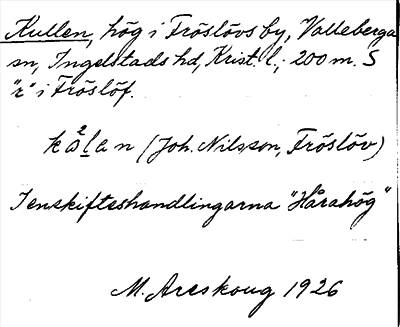 Kullen, hög i Fröslövs by, Valleberga
sn, Ingelstads hd, Krist. l.; 200 m. S
"r" i Fröslöf.
kålan (Joh. Nilsson, Fröslöv)
I enskifteshandlingarna "Hårahög"
M. Areskoug 1926